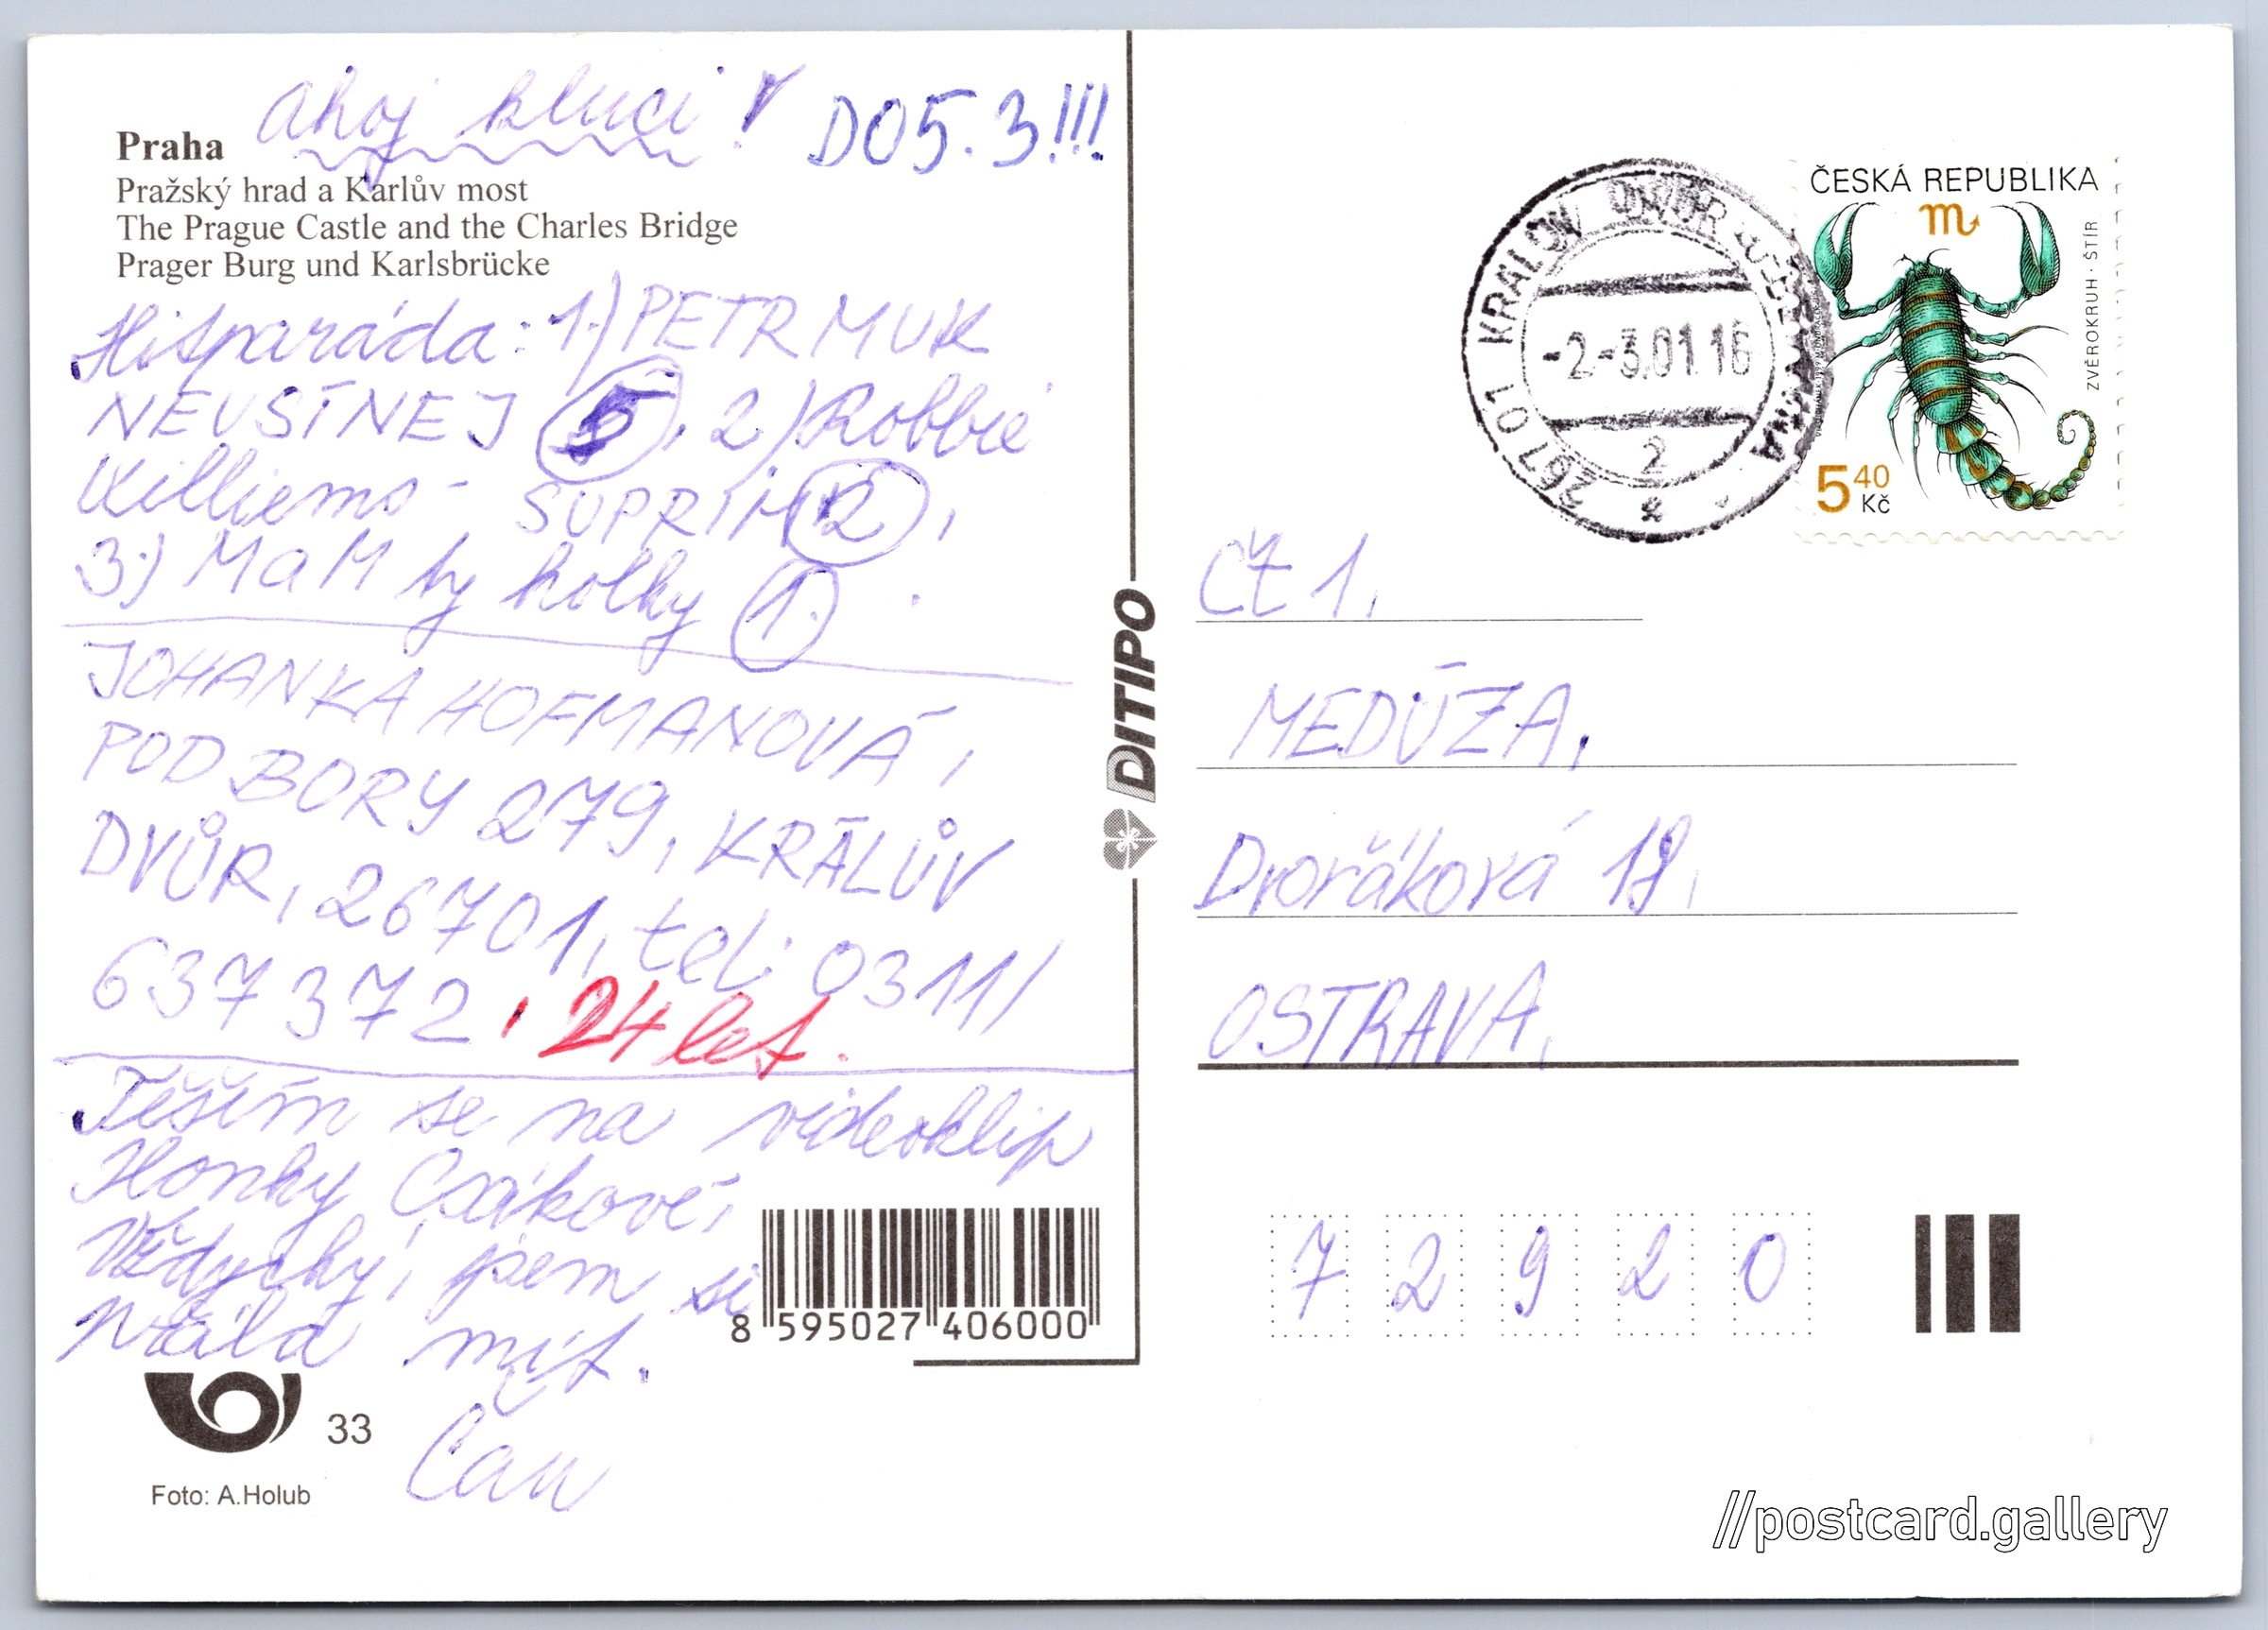 ahoj kluci! DO 5.3!!!
Praha
Pražský hrad a Karlův most
The Prague Castle and the Charles Bridge
Prager Burg und Karlsbrücke
Hitparáda: 1.) PETR MUK
NEUSÍNEJ 5, 2.) Robbie
Williems - SUPRÍM 2,
3.) MaM ty holky 1.
JOHANKA HOFMANOVÁ,
POD BORY 279, KRÁLŮV
DVŮR, 26701, tel: 0311/
637372, 24 let.
Těším se na videoklip
Honky Csákové,
Vždycky, jsem si
přála mít.
Čau
8 595027 406000
33
Foto: A.Holub
DITIPO
ČESKÁ REPUBLIKA
ZVĚROKRUH · ŠTÍR
5 40 Kč
267 01 KRÁLŮV DVŮR U BEROUNA
-2.-3.01.16
2
ČT 1,
MEDÚZA,
Dvořáková 18,
OSTRAVA,
7 2 9 2 0
//postcard.gallery